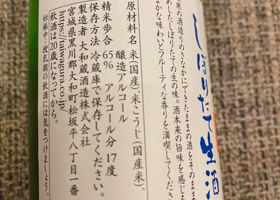 しぼりたて生酒
米の酒造りのさなかにできたままの酒をそのまま
たしぼりたての生の味。酒本来の旨味を感じ
かな味わいとフルーティな香りを満喫してくださ
原材料名 米(国産)米こうじ(国産米)、
醸造アルコール
精米歩合 65% アルコール分 17度
保存方法 冷蔵庫で保存してください。
製造者 大和蔵酒造株式会社
宮城県黒川郡大和町松坂平八丁目一番
https://taiwagura.co.jp
飲酒は20歳になってから。
妊娠中、授乳期の飲酒には気をつけましょう。